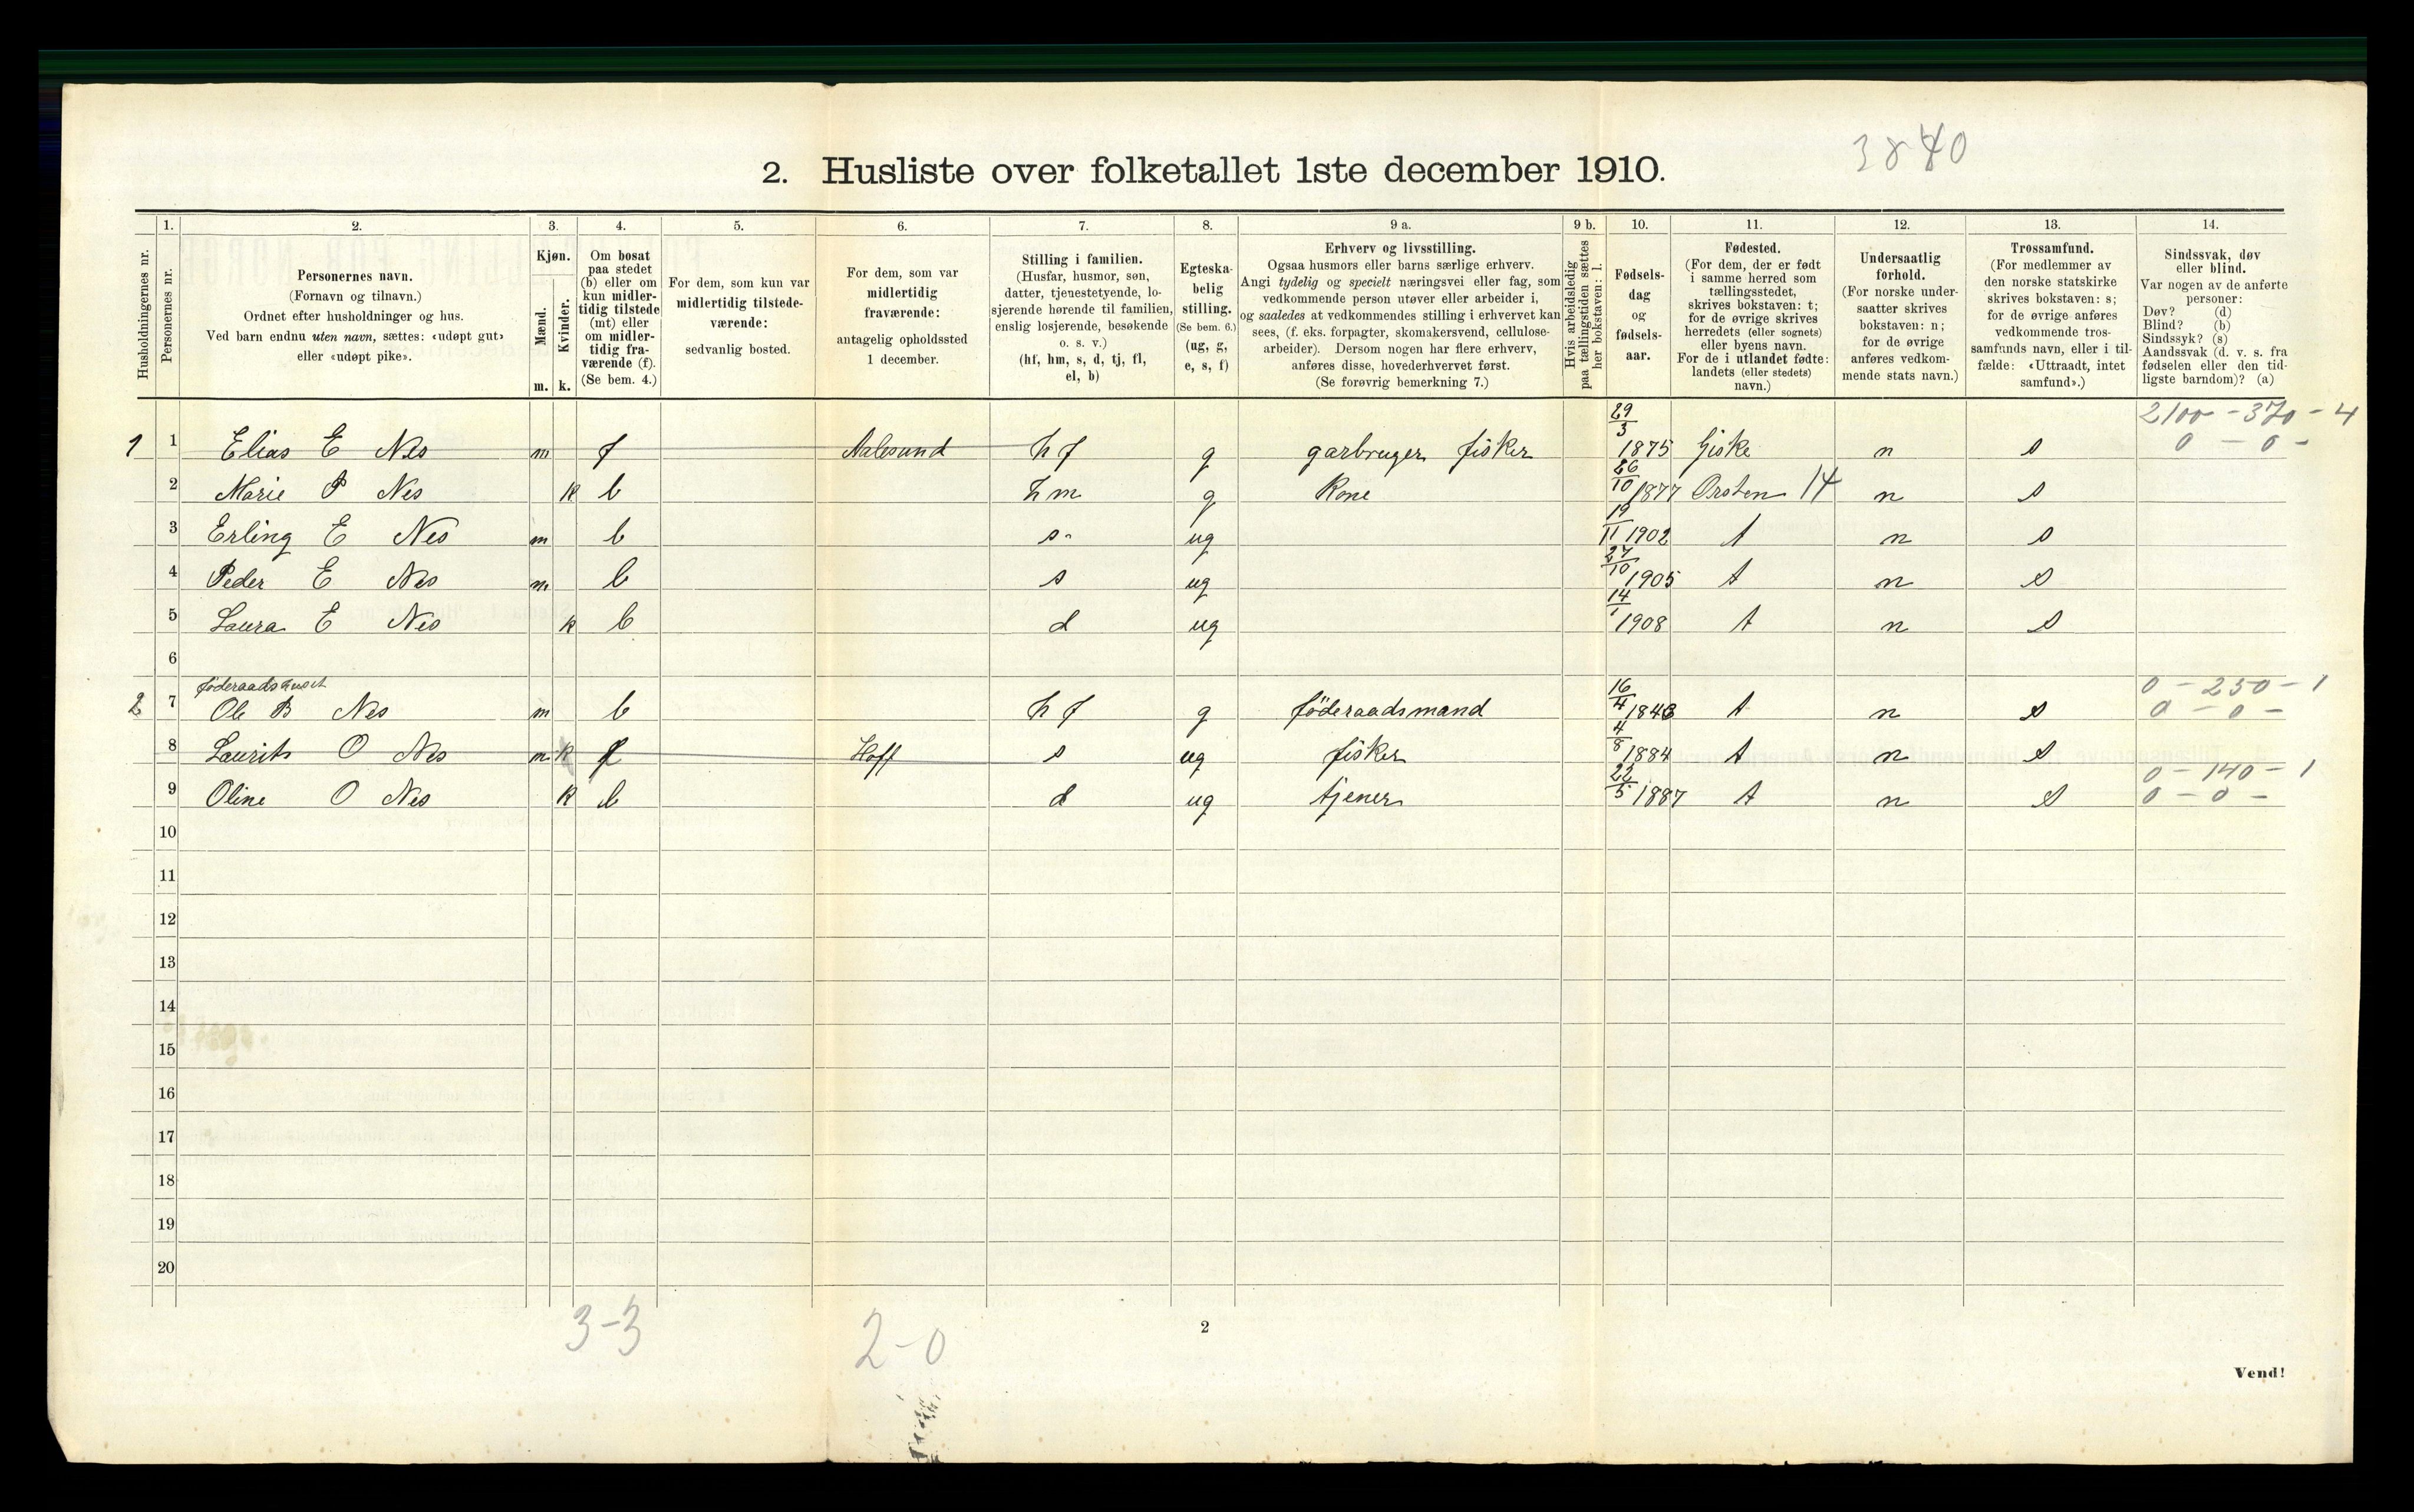 3840
2. Husliste over folketallet 1ste december 1910.
Husholdningernes nr.
1. Personernes nr.
2. Personernes navn.
(Fornavn og tilnavn.)
Ordnet efter husholdninger og hus.
Ved barn endnu uten navn, sættes: «udøpt gut»
eller «udøpt pike».
3. Kjøn.
Mænd. m.
Kvinder. k.
4. Om bosat
paa stedet
(b) eller om
kun midler-
tidig tilstede
(mt) eller
om midler-
tidig fra-
værende (f).
(Se bem. 4.)
5. For dem, som kun var
midlertidig tilstede-
værende:
sedvanlig bosted.
6. For dem, som var
midlertidig
fraværende:
antagelig opholdssted
1 december.
7. Stilling i familien.
(Husfar, husmor, søn,
datter, tjenestetyende, lo-
sjerende hørende til familien,
enslig losjerende, besøkende
o. s. v.)
(hf, hm, s, d, tj, fl,
el, b)
8. Egteska-
belig
stilling.
(Se bem. 6.)
(ug, g,
e, s, f)
9 a. Erhverv og livsstilling.
Ogsaa husmors eller barns særlige erhverv.
Angi tydelig og specielt næringsvei eller fag, som
vedkommende person utøver eller arbeider i,
og saaledes at vedkommendes stilling i erhvervet kan
sees, (f. eks. forpagter, skomakersvend, cellulose-
arbeider). Dersom nogen har flere erhverv,
anføres disse, hovederhvervet først.
(Se forøvrig bemerkning 7.)
9 b. Hvis arbeidsledig
paa tællingstiden sættes
her bokstaven: l.
10. Fødsels-
dag
og
fødsels-
aar.
11. Fødested.
(For dem, der er født
i samme herred som
tællingsstedet,
skrives bokstaven: t;
for de øvrige skrives
herredets (eller sognets)
eller byens navn.
For de i utlandet fødte:
landets (eller stedets)
navn.)
12. Undersaatlig
forhold.
(For norske under-
saatter skrives
bokstaven: n;
for de øvrige
anføres vedkom-
mende stats navn.)
13. Trossamfund.
(For medlemmer av
den norske statskirke
skrives bokstaven: s;
for de øvrige anføres
vedkommende tros-
samfunds navn, eller i til-
fælde: «Uttraadt, intet
samfund».)
14. Sindssvak, døv
eller blind.
Var nogen av de anførte
personer:
Døv? (d)
Blind? (b)
Sindssyk? (s)
Aandssvak (d. v. s. fra
fødselen eller den tid-
ligste barndom)? (a)
1 1 Elias E Nes m f Aalesund hf g garbruger fisker 29/3 1875 Giske n s 2100 - 370 - 4 0 - 0 -
2 Marie P Nes k b hm g Kone 26/10 1877 Orsten 14 n s
3 Erling E Nes m b s ug 19/11 1902 t n s
4 Peder E Nes m b s ug 27/10 1905 t n s
5 Laura E Nes k b d ug 14/1 1908 t n s
6
føderaadshuset
2 7 Ole B Nes m b hf g föderaadsmand 16/4 1843 t n s 0 - 250 - 1 0 - 0 -
8 Laurits O Nes m k f Hoff s ug fisker 4/8 1884 t n s
9 Oline O Nes k b d ug tjener 22/5 1887 t n s 0 - 140 - 1 0 - 0 -
10
11
12
13
14
15
16
17
18
19
20
3-3 2-0
2
Vend!